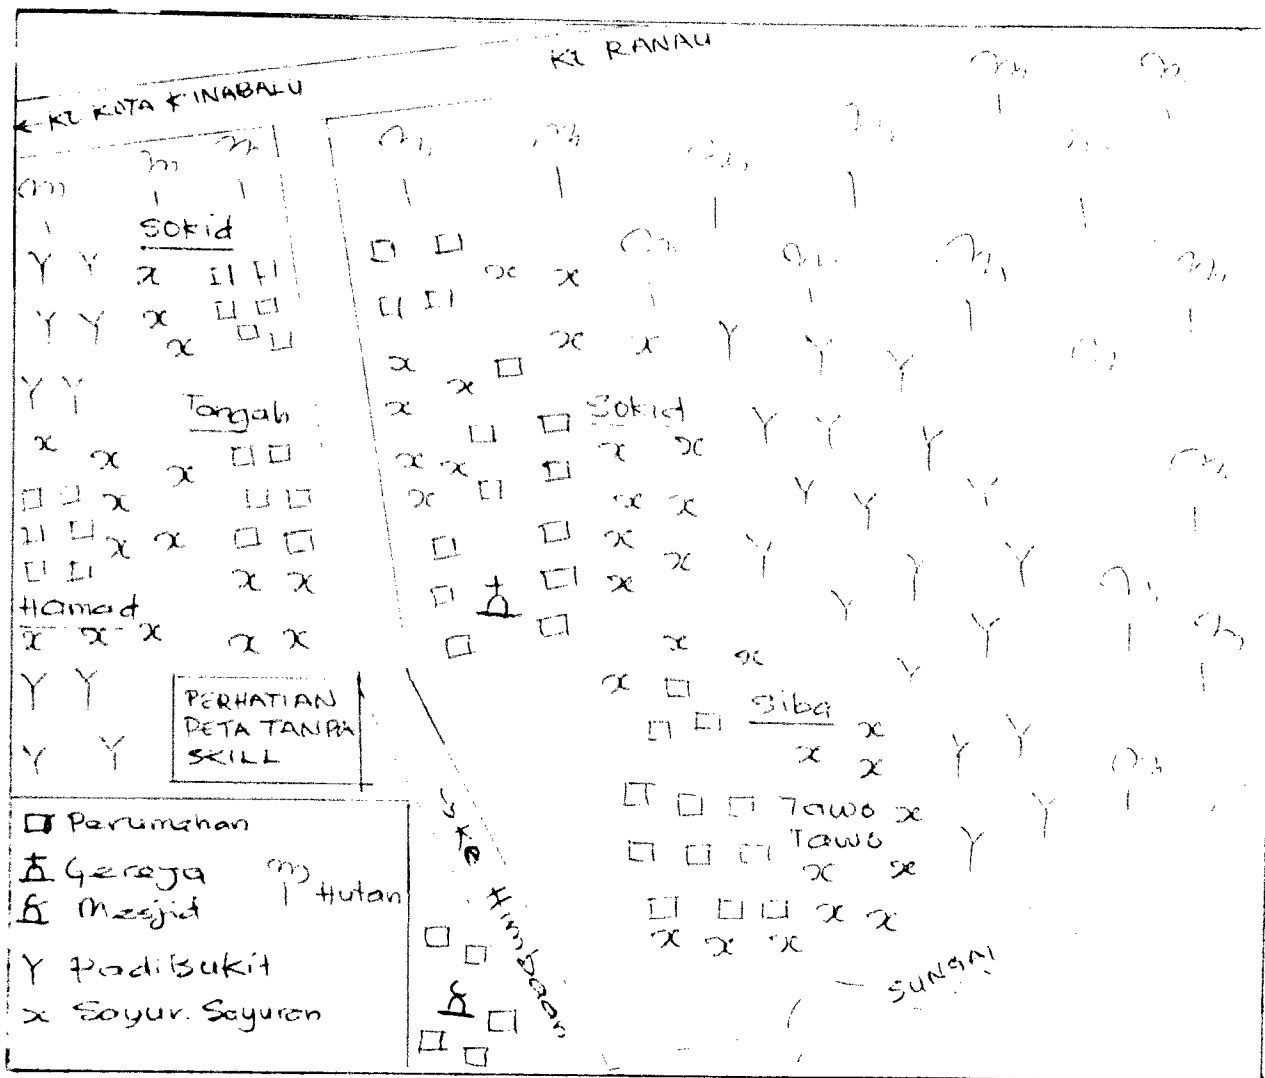 KE RANAU
← KE KOTA KINABALU
Sokid
Tangah
Sokid
Hamad
PERHATIAN
PETA TANPA
SKILL
Siba
Tawo
Tawo
Ke Himbaan
SUNGAI
Perumahan
Gereja
Mesjid
Hutan
Padi Bukit
Sayur. Sayuran